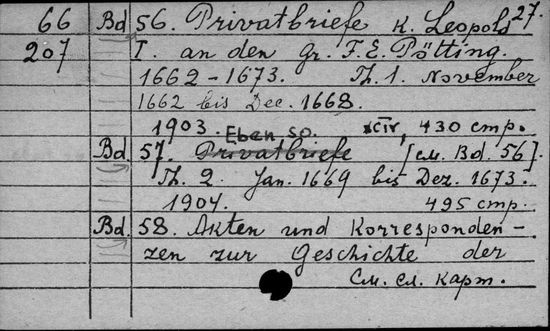 66 Bd 56. Privatbriefe K. Leopold 27.
207 I. an den Gr. F. E. Pötting.
1662-1673. Th. 1. November
1662 bis Dec. 1668.
1903. XCIV, 430 стр.
Eben so.
Bd. 57. Privatbriefe [см. Bd. 56].
Th. 2. Jan. 1669 bis Dez. 1673.
1904. 495 стр.
Bd. 58. Akten und Korresponden-
zen zur Geschichte der
См. сл. карт.